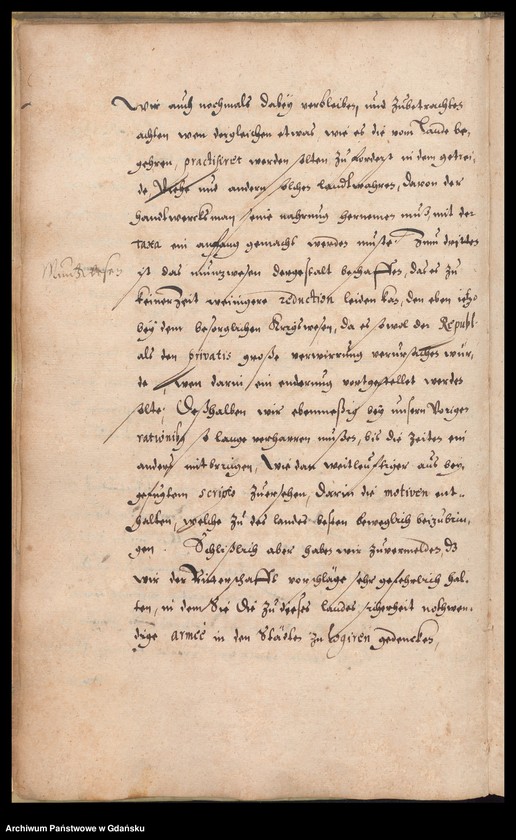 Wir auch nochmals dabey verbleiben, und zubetrachten
achten wen dergleichen etwas wie es die vom Lande be,
gehren, practisiret werden solten zu forderst in dem getrei,
de, Viehe und andern solchen landtwahren, davon der
handtwercksman seine nahrung hernemen muß, mit der
taxa ein anfang gemacht werden muste. Zum dritten
Muntzwesen
ist das muntzwesen dergestalt beschaffen, das es zu
keiner Zeit weinigere reduction leiden kan, den eben jetzo
bey dem besorglichen Krigswesen, da es sowol der Republ:
als den privatis große verwirrung verursachen wur,
de, wen darin ein enderung vorgestellet werden
solte, Deßhalben wir ebenmeßig bey unsern vorigen
rationibus so lange verharren mußen, bis die zeiten ein
anders mitbringen, Wie dan weitleuftiger aus bey,
gefugtem scripto zuersehen, darin die motiven ent,,
halten, welche zu des landes besten beweglich beizubrin,
gen. Schlißlich aber haben wir zuvermelden, dz
wir der Ritterschafft vorschläge sehr gefehrlich hal,
ten, in dem Sie die zu dieses landes sicherheit nothwen,
dige armée in den Städten zu logiren gedencken,
Archiwum Państwowe w Gdańsku